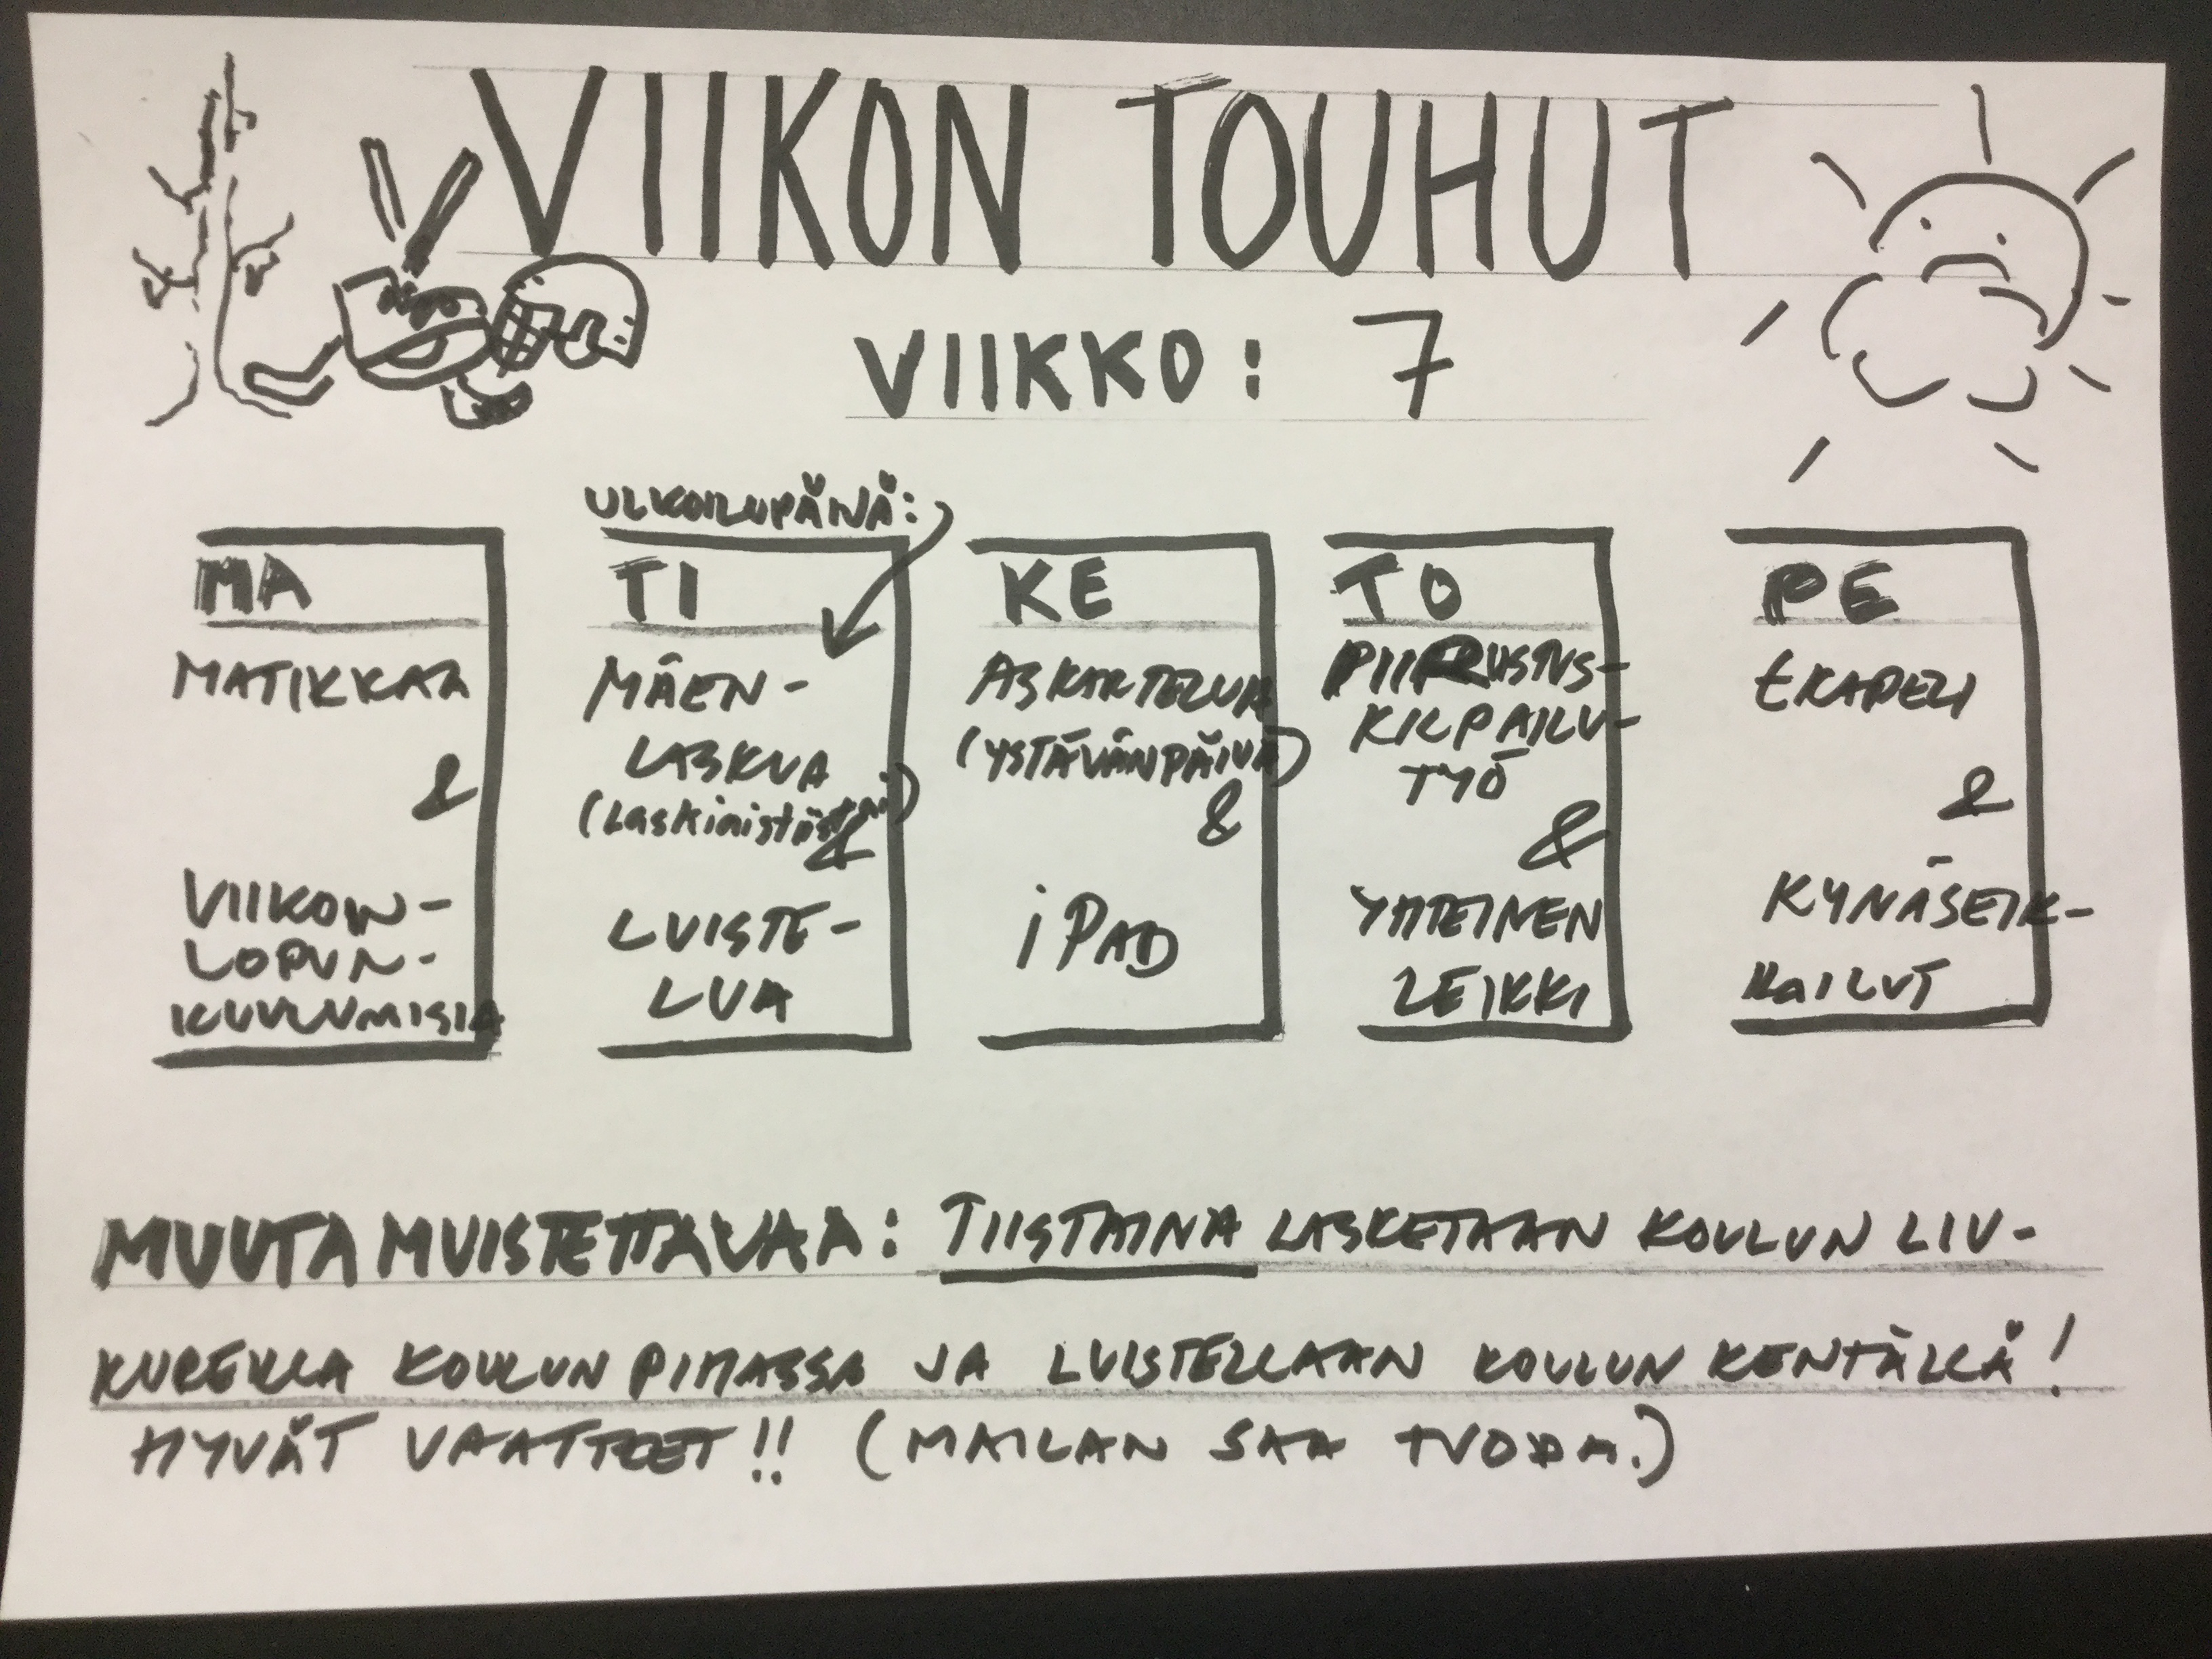 VIIKON TOUHUT
VIIKKO: 7
MA
MATIKKAA
&
VIIKON-
LOPUN-
KUULUMISIA
ULKOILUPÄIVÄ:
TI
MÄEN-
LASKUA
&
LUISTE-
LUA
KE
ASKARTELUA
(YSTÄVÄNPÄIVÄ)
&
iPAD
TO
PIIRUSTUS-
KILPAILU-
TYÖ
&
YHTEINEN
LEIKKI
PE
EKAPELI
&
KYNÄSEIK-
KAILUT
MUUTA MUISTETTAVAA: TIISTAINA LASKETAAN KOULUN LIU-
KUREILLA KOULUN PIHASSA JA LUISTELLAAN KOULUN KENTÄLLÄ!
HYVÄT VAATTEET!! (MAILAN SAA TUODA.)